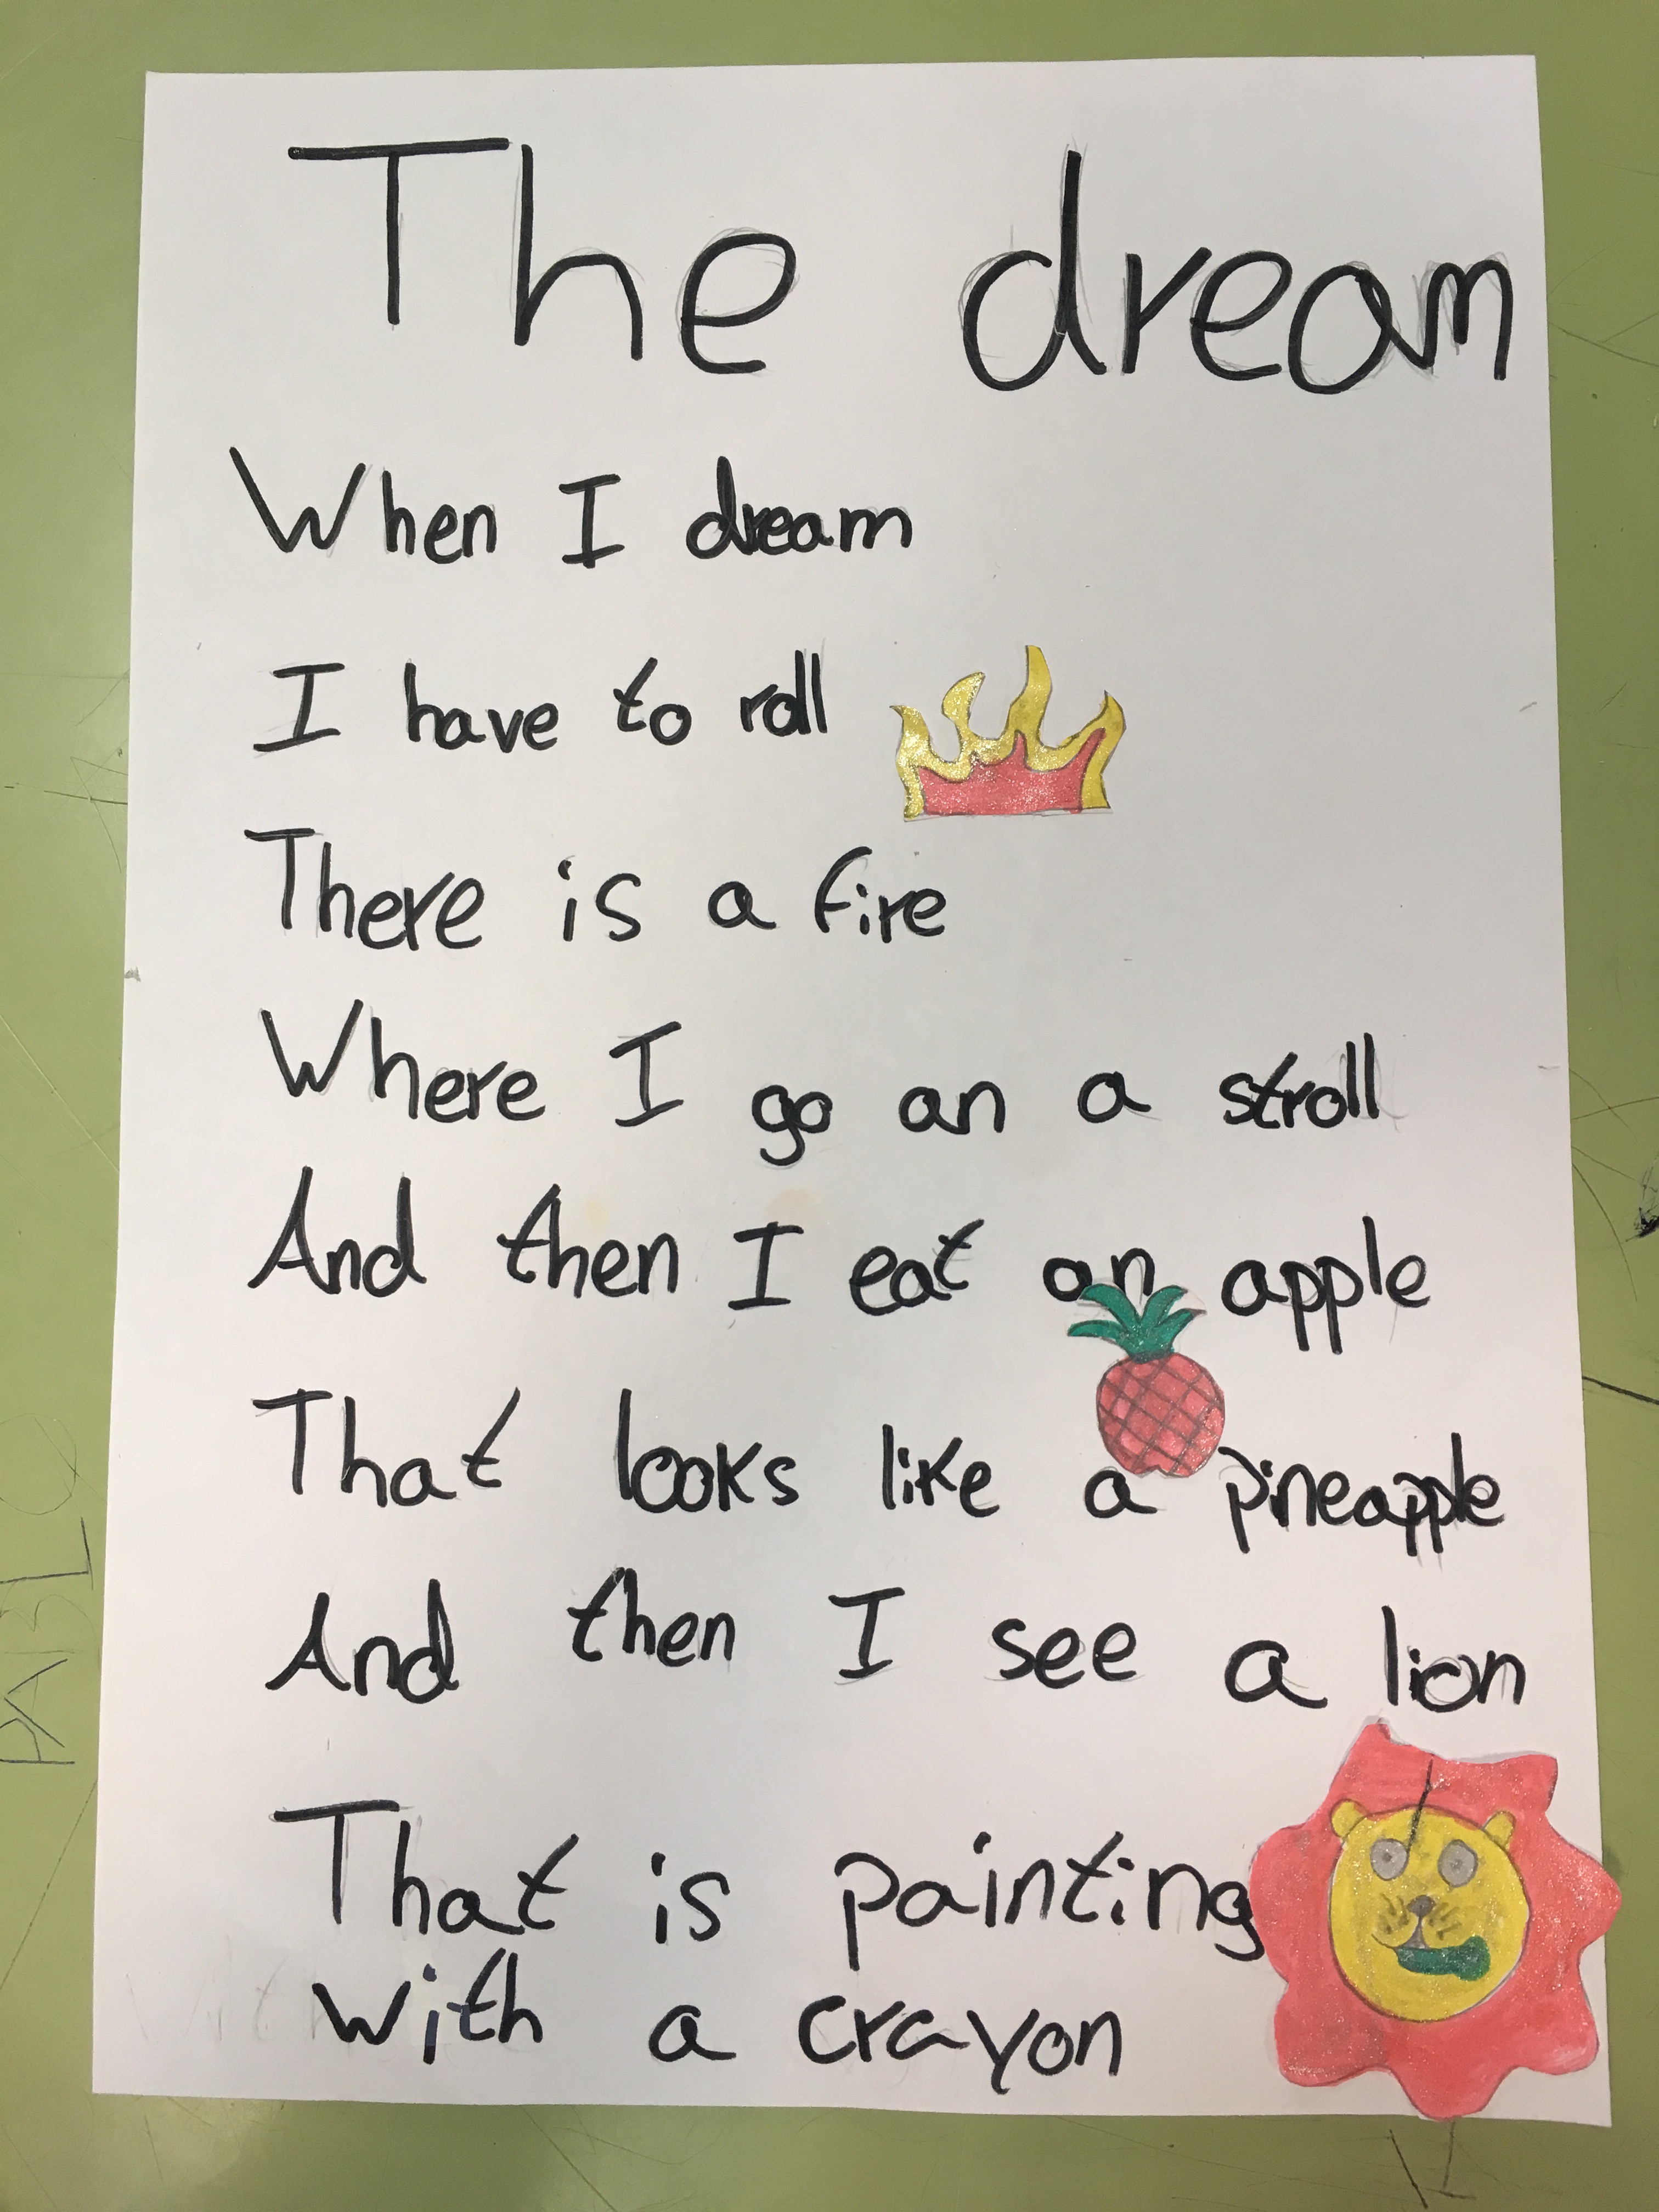 The dream
When I dream
I have to roll
There is a fire
Where I go an a stroll
And then I eat an apple
That looks like a pineapple
And then I see a lion
That is painting
with a crayon
PABLO